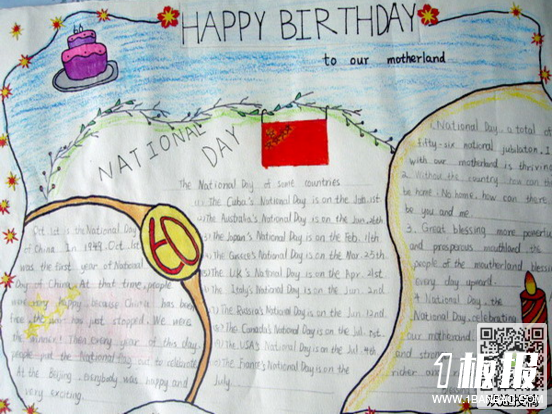 HAPPY BIRTHDAY
to our motherland
60
NATIONAL
DAY
The National Day of some countries
The Cuba's National Day is on the Jan. 1st.
The Australia's National Day is on the Jan. 26th
The Japan's National Day is on the Feb. 11th
The Greece's National Day is on the Mar. 25th.
The U.K.'s National Day is on the Apr. 21st
The Italy's National Day is on the Jun. 2nd
The Russia's National Day is on the Jun. 12nd.
The Canada's National Day is on the Jul. 1st.
The USA's National Day is on the Jul. 4th
The France's National Day is on the
July
Oct. 1st is the National Day
of China. In 1949. Oct. 1st
was the first year of National
Day of China. At that time, people
were very happy, because China has been
free, the war has just stopped. We were
the Then every year of this day.
people put the National Day out to celebrate
At the Beijing, everybody was happy and
very exciting.
60
1. National Day, a total of
fifty-six national jubilation. I
with our motherland is thriving
2. Without the country, how can there
be home. No home, how can there
be you and me.
3. Great blessing more powerful
and prosperous mouthland the
people of the mountherland blessed
Every day upward.
4. National Day, the
National Day, celebrating
our motherland
and
richer and
1板报
WWW.1BANBAO.COM